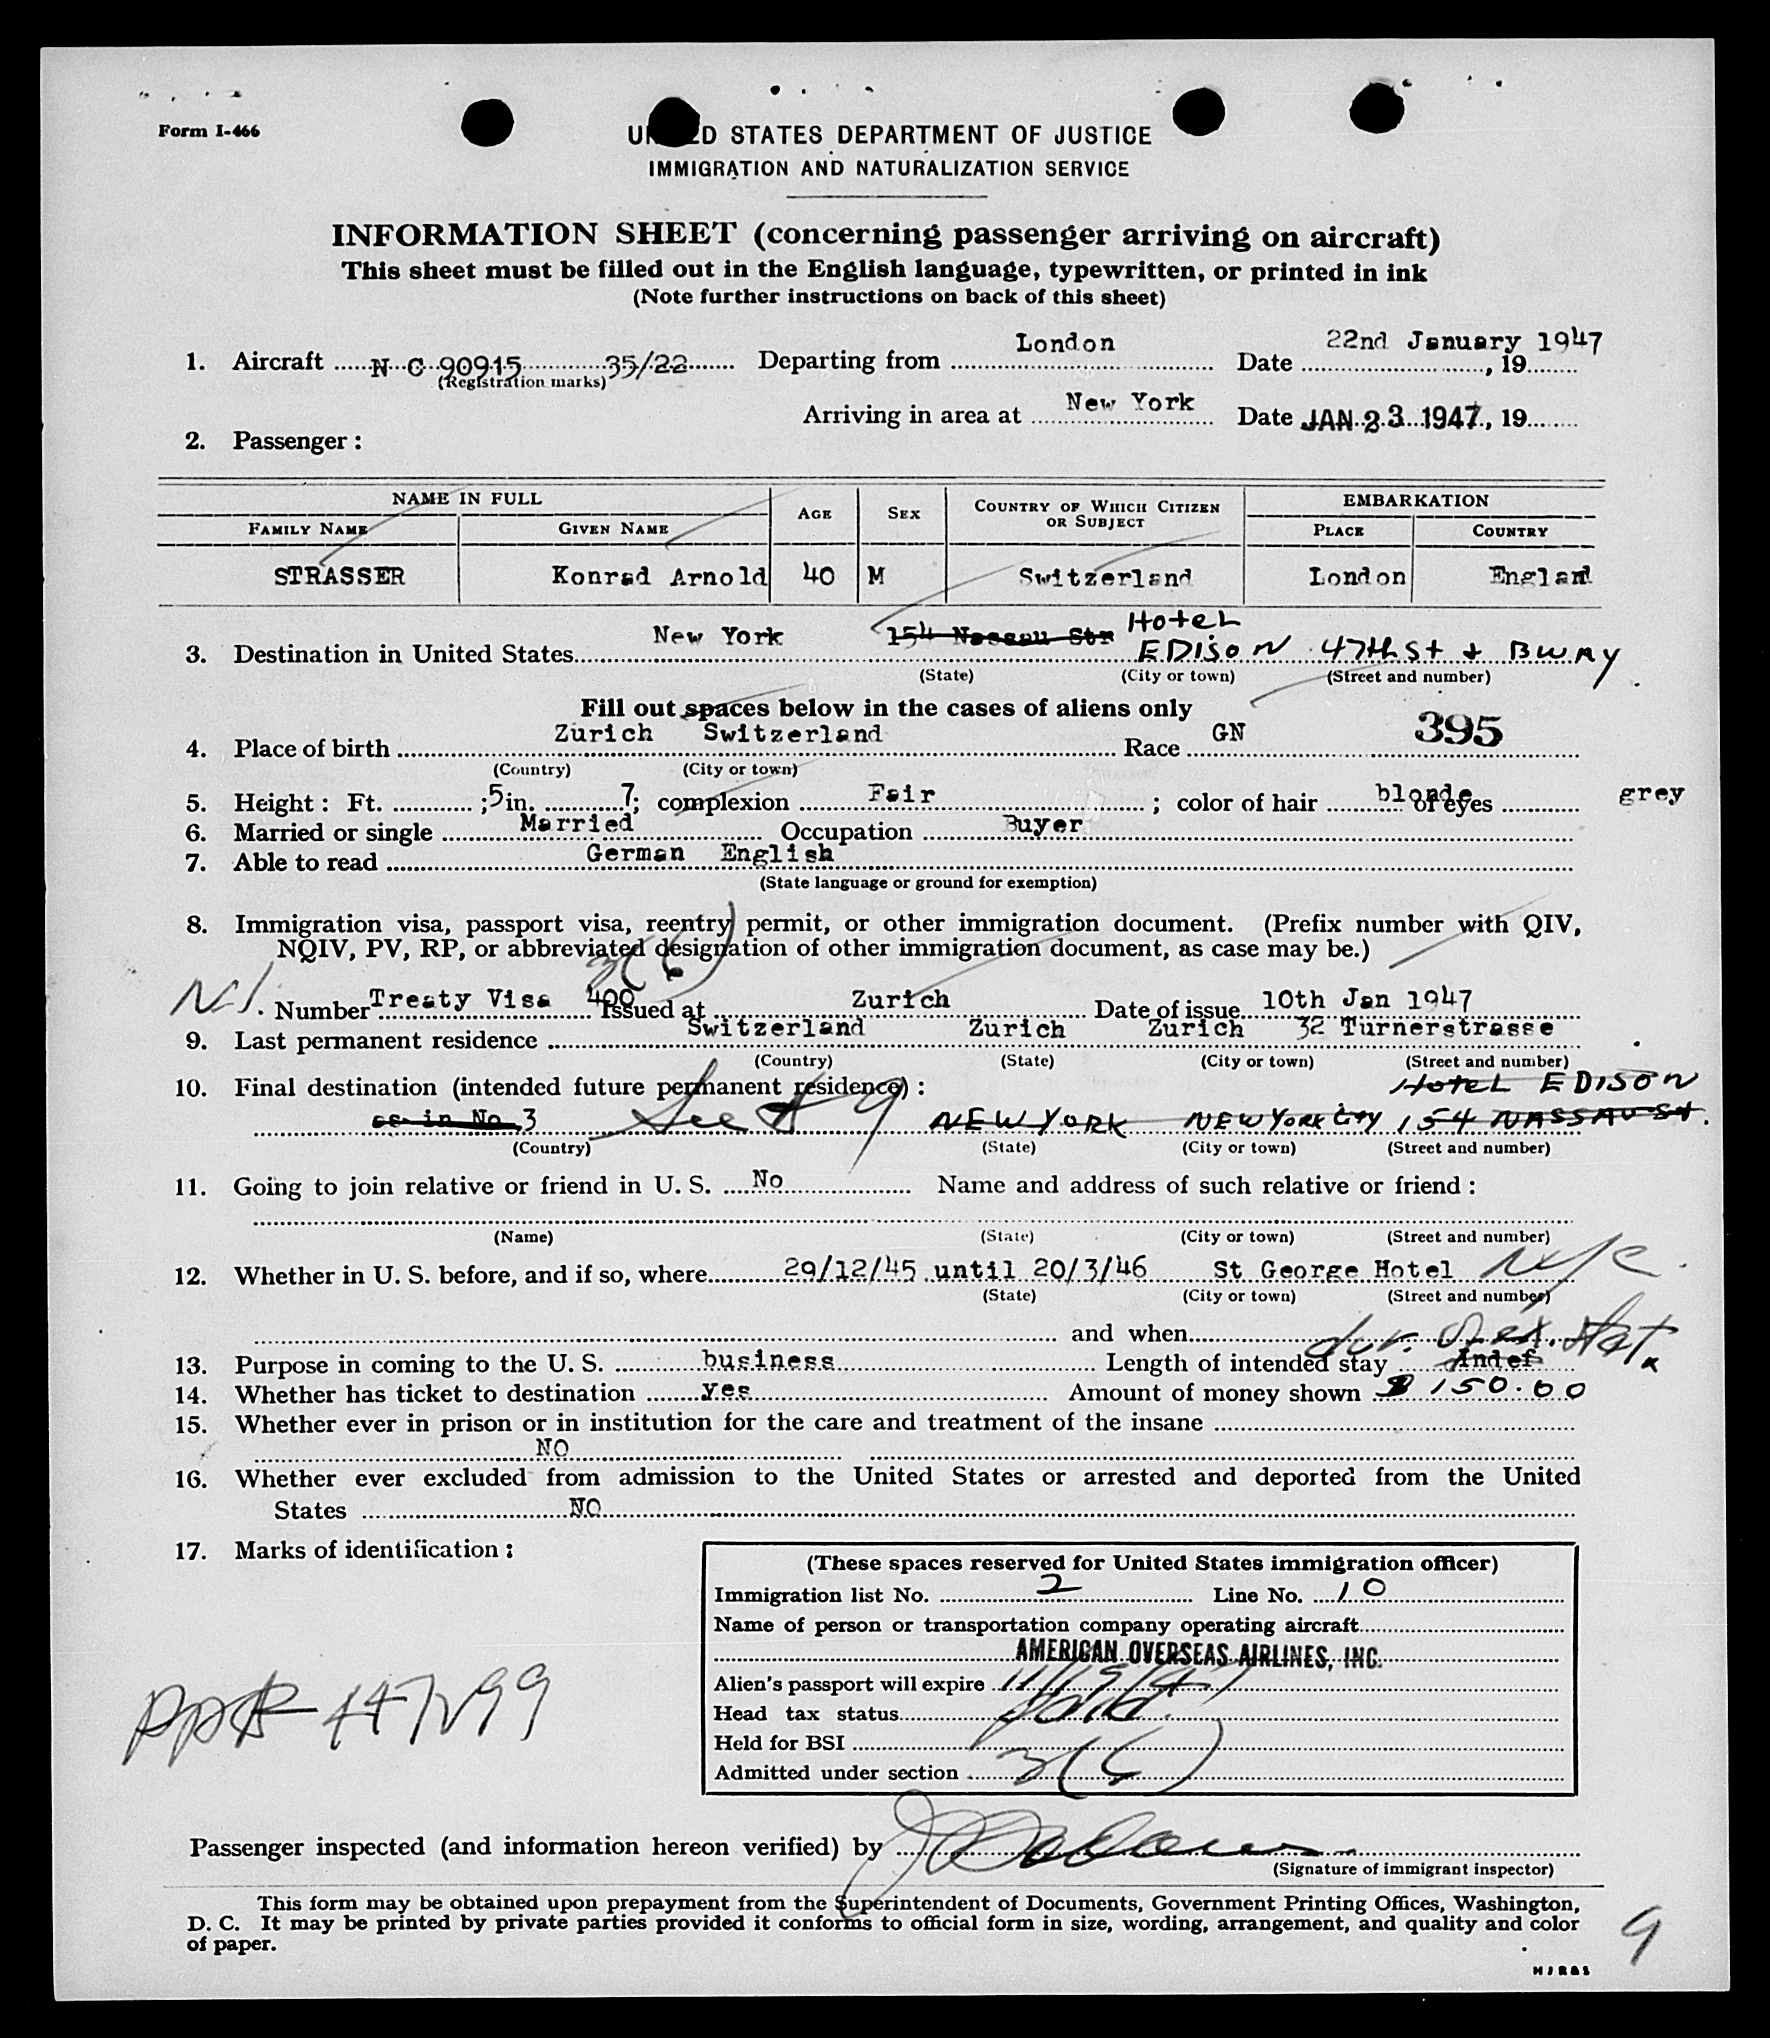 Form I-466
UNITED STATES DEPARTMENT OF JUSTICE
IMMIGRATION AND NATURALIZATION SERVICE
INFORMATION SHEET (concerning passenger arriving on aircraft)
This sheet must be filled out in the English language, typewritten, or printed in ink
(Note further instructions on back of this sheet)
1. Aircraft N C 90915 35/22 Departing from London Date 22nd January 1947, 19
(Registration marks)
Arriving in area at New York Date JAN 23 1947, 19
2. Passenger:
NAME IN FULL AGE SEX COUNTRY OF WHICH CITIZEN OR SUBJECT EMBARKATION
FAMILY NAME GIVEN NAME PLACE COUNTRY
STRASSER Konrad Arnold 40 M Switzerland London England
3. Destination in United States New York 154 Nassau Str HOTEL EDISON 47th St + BWAY
(State) (City or town) (Street and number)
Fill out spaces below in the cases of aliens only
4. Place of birth Zurich Switzerland Race GN 395
(Country) (City or town)
5. Height: Ft. ; 5 in. 7; complexion Fair ; color of hair blonde of eyes grey
6. Married or single Married Occupation Buyer
7. Able to read German English
(State language or ground for exemption)
8. Immigration visa, passport visa, reentry permit, or other immigration document. (Prefix number with QIV,
NQIV, PV, RP, or abbreviated designation of other immigration document, as case may be.)
3(6)
Number Treaty Visa 400 Issued at Zurich Date of issue 10th Jan 1947
9. Last permanent residence Switzerland Zurich Zurich 32 Turnerstrasse
(Country) (State) (City or town) (Street and number)
10. Final destination (intended future permanent residence): HOTEL EDISON
as in No 3 See # 9 NEW YORK NEW YORK City 154 NASSAU St.
(Country) (State) (City or town) (Street and number)
11. Going to join relative or friend in U. S. No Name and address of such relative or friend:
(Name) (State) (City or town) (Street and number)
12. Whether in U. S. before, and if so, where 29/12/45 until 20/3/46 St George Hotel NYC
(State) (City or town) (Street and number)
and when
13. Purpose in coming to the U. S. business Length of intended stay Indef dur. stat.
14. Whether has ticket to destination yes Amount of money shown $ 150.00
15. Whether ever in prison or in institution for the care and treatment of the insane
NO
16. Whether ever excluded from admission to the United States or arrested and deported from the United
States NO
17. Marks of identification:
(These spaces reserved for United States immigration officer)
Immigration list No. 2 Line No. 10
Name of person or transportation company operating aircraft
AMERICAN OVERSEAS AIRLINES, INC.
Alien's passport will expire 11/19/47
Head tax status
Held for BSI
Admitted under section 3(6)
Passenger inspected (and information hereon verified) by
(Signature of immigrant inspector)
This form may be obtained upon prepayment from the Superintendent of Documents, Government Printing Offices, Washington,
D. C. It may be printed by private parties provided it conforms to official form in size, wording, arrangement, and quality and color
of paper.
9